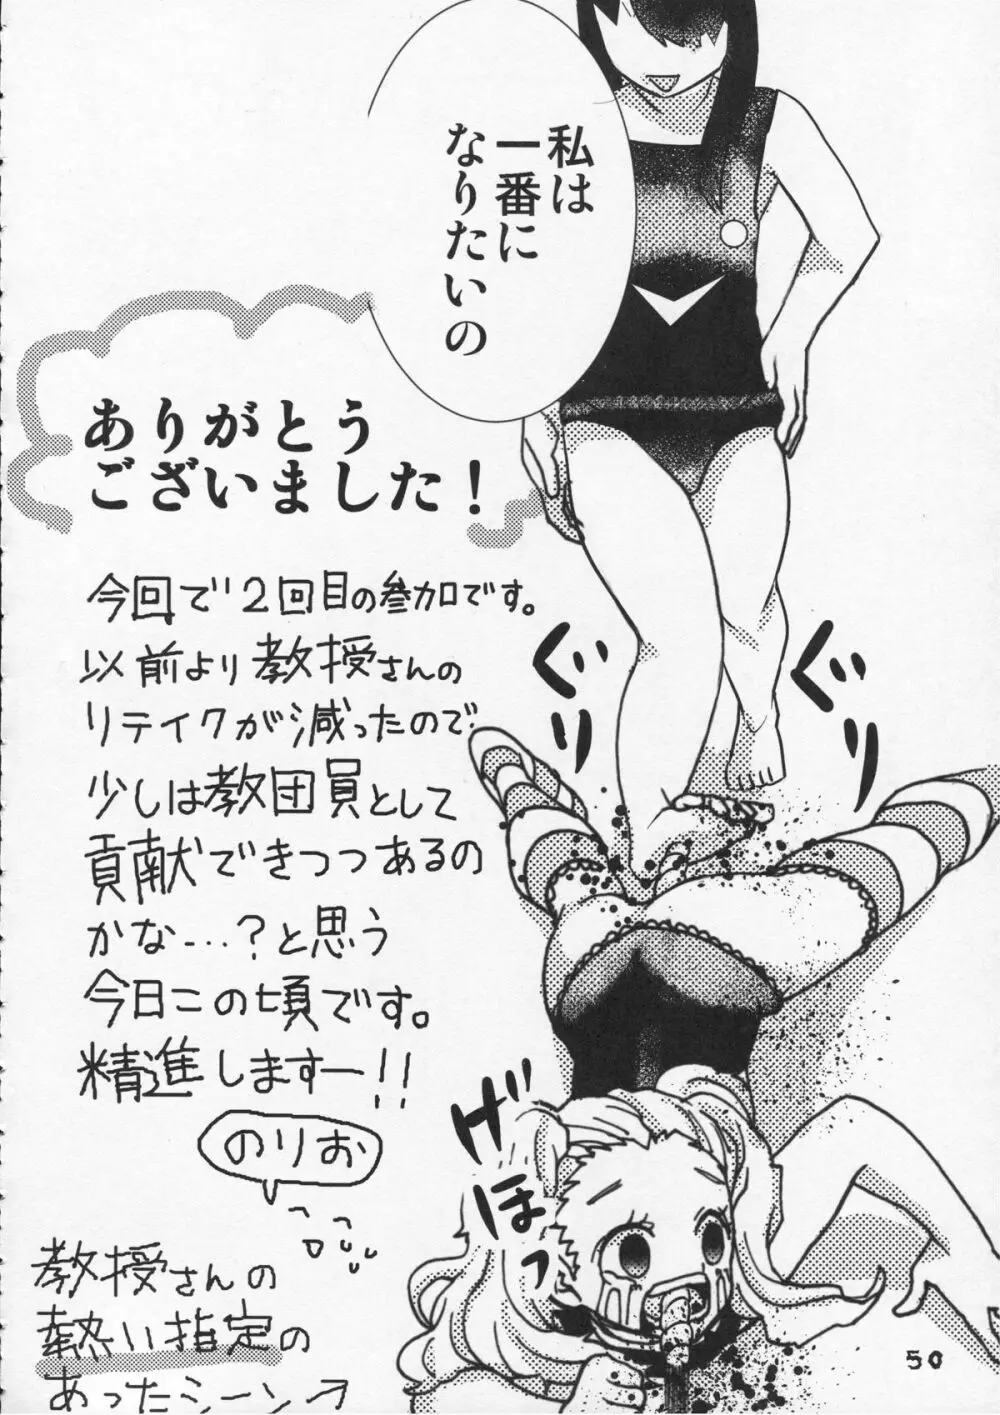 私は
一番に
なりたいの
ありがとう
ございました！
今回で2回目の参加です。
以前より教授さんの
リテイクが減ったので
少しは教団員として
貢献できつつあるの
かな…？と思う
今日この頃です。
精進しますー！！
のりお
ぐりぐり
げほっ
教授さんの
熱い指定の
あったシーン→
50